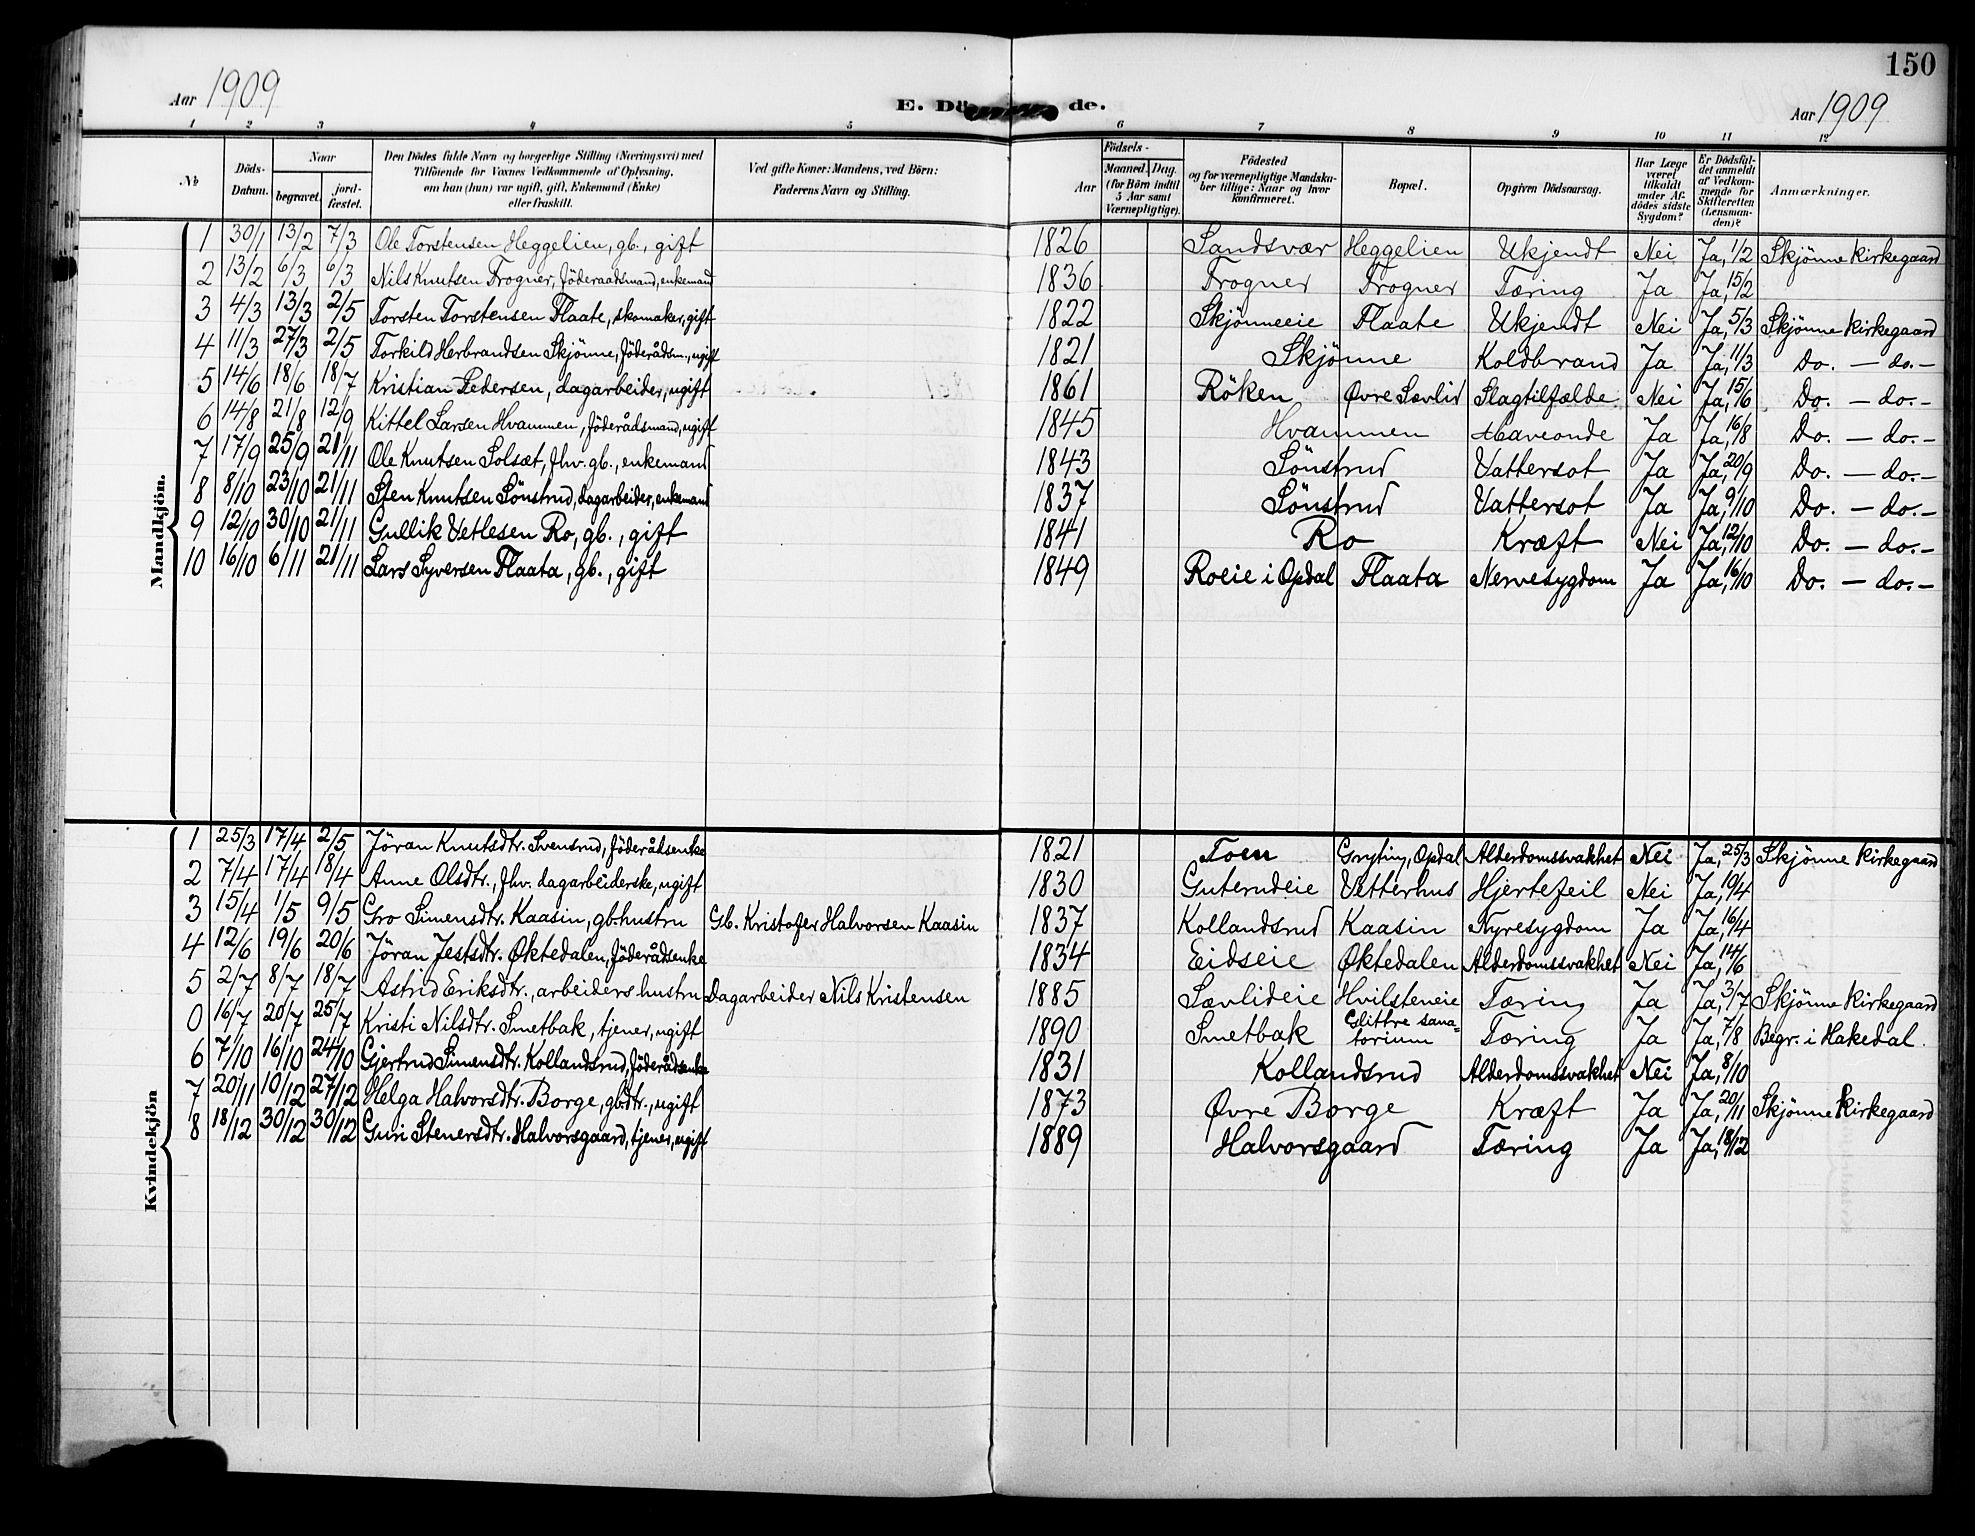 150
Aar 1909 E. Dö de. Aar 1909
1 2 3 4 5 6 7 8 9 10 11 12
№ Döds-Datum. Naar begravet. jord-fæstet. Den Dödes fulde Navn og borgerlige Stilling (Næringsvei) med Tilföiende for Voxnes Vedkommende af Oplysning, om han (hun) var ugift, gift, Enkemand (Enke) eller fraskilt. Ved gifte Koner: Mandens, ved Börn: Faderens Navn og Stilling. Aar Födsels- Maaned. Dag. (for Börn indtil 5 Aar samt Værnepligtige). Födested og for værnepligtige Mandska-ber tillige: Naar og hvor konfirmeret. Bopæl. Opgiven Dödsaarsag. Har Læge været tilkaldt under Af-dödes sidste Sygdom? Er Dödsfal-det anmeldt af Vedkom-mende for Skifteretten (Lensman-den)? Anmærkninger.
Mandkjön.
1 30/1 13/2 7/3 Ole Torstensen Heggelien, gb., gift 1826 Sandsvær Heggelien Ukjendt Nei Ja, 1/2 Skjønne kirkegaard
2 13/2 6/3 6/3 Nils Knutsen Frogner, föderaadsmand, enkemand 1836 Frogner Frogner Tæring Ja Ja, 15/2
3 4/3 13/3 2/5 Torsten Torstensen Flaate, skomaker, gift 1822 Skjønneeie Flaate Ukjendt Nei Ja, 5/3 Skjønne kirkegaard
4 11/3 27/3 2/5 Torkild Herbrandsen Skjønne, föderådsm., ugift 1821 Skjønne Koldbrand Ja Ja, 11/3 Do. — do. —
5 14/6 18/6 18/7 Kristian Pedersen, dagarbeider, ugift 1861 Röken Øvre Sævlid Slagtilfælde Nei Ja, 15/6 Do. — do. —
6 14/8 21/8 12/9 Kittel Larsen Hvammen, föderådsmand, ugift 1845 Hvammen Maveonde Ja Ja, 16/8 Do. — do. —
7 17/9 25/9 21/11 Ole Knutsen Solsæt, fhv. gb., enkemand 1843 Sönstrud Vattersot Ja Ja, 20/9 Do. — do. —
8 8/10 23/10 21/11 Sten Knutsen Sönstrud, dagarbeider, enkemand 1837 Sönstrud Vattersot Ja Ja, 9/10 Do. — do. —
9 12/10 30/10 21/11 Gullik Vetlesen Ro, gb., gift 1841 Ro Kræft Nei Ja, 12/10 Do. — do. —
10 16/10 6/11 21/11 Lars Syversen Flaata, gb., gift 1849 Roeie i Opdal Flaata Nervesygdom Ja Ja, 16/10 Do. — do. —
Kvindekjön
1 25/3 17/4 2/5 Jöran Knutsdtr. Svensrud, föderådsenke 1821 Toen Gryting, Opdal Alderdomssvakhet Nei Ja, 25/3 Skjønne kirkegaard
2 7/4 17/4 18/4 Anne Olsdtr., fhv. dagarbeiderske, ugift 1830 Guterudeie Vetterhus Hjertefeil Nei Ja, 19/4
3 15/4 1/5 9/5 Gro Simensdtr. Kaasin, gb.hustru Gb. Kristofer Halvorsen Kaasin 1837 Kollandsrud Kaasin Nyresygdom Ja Ja, 16/4
4 12/6 19/6 20/6 Jöran Jestsdtr. Øktedalen, föderådsenke 1834 Eidseie Øktedalen Alderdomssvakhet Nei Ja, 14/6
5 2/7 8/7 18/7 Astrid Eriksdtr., arbeiders hustru Dagarbeider Nils Kristensen 1885 Sævlideie Hvilsteneie Tæring Ja Ja, 3/7 Skjønne kirkegaard
0 16/7 20/7 25/7 Kristi Nilsdtr. Smetbak, tjener, ugift 1890 Smetbak Glittre sana-torium Tæring Ja Ja, 7/8 Begr. i Hakedal.
6 7/10 16/10 24/10 Gjertrud Simensdtr. Kollandsrud, föderådsenke 1831 Kollandsrud Alderdomssvakhet Nei Ja, 8/10
7 20/11 10/12 27/12 Helga Halvorsdtr. Borge, gbdtr., ugift 1873 Øvre Borge Kræft Ja Ja, 20/11 Skjønne kirkegaard
8 18/12 30/12 30/12 Guri Stenersdtr. Halvorsgaard, tjener, ugift 1889 Halvorsgaard Tæring Ja Ja, 18/12